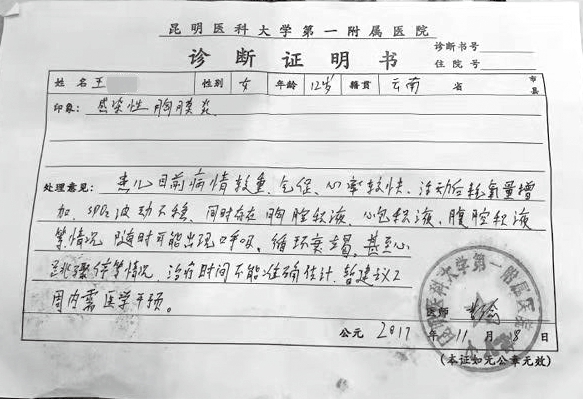 昆明医科大学第一附属医院
诊断证明书
诊断书号
住院号
姓名 王 性别 女 年龄 12岁 籍贯 云南 省 市县
印象: 感染性胸膜炎
处理意见: 患儿目前病情较重、气促、心率较快、活动后耗氧量增
加、SPO2波动不稳、同时存在胸腔积液、心包积液、腹腔积液
等情况 随时可能出现呼吸、循环衰竭、甚至心
跳骤停等情况、治疗时间不能准确估计、暂建议2
周内需医学干预。
医师
公元 2017 年 11 月 8 日
(本证如无公章无效)
昆明医科大学第一附属医院